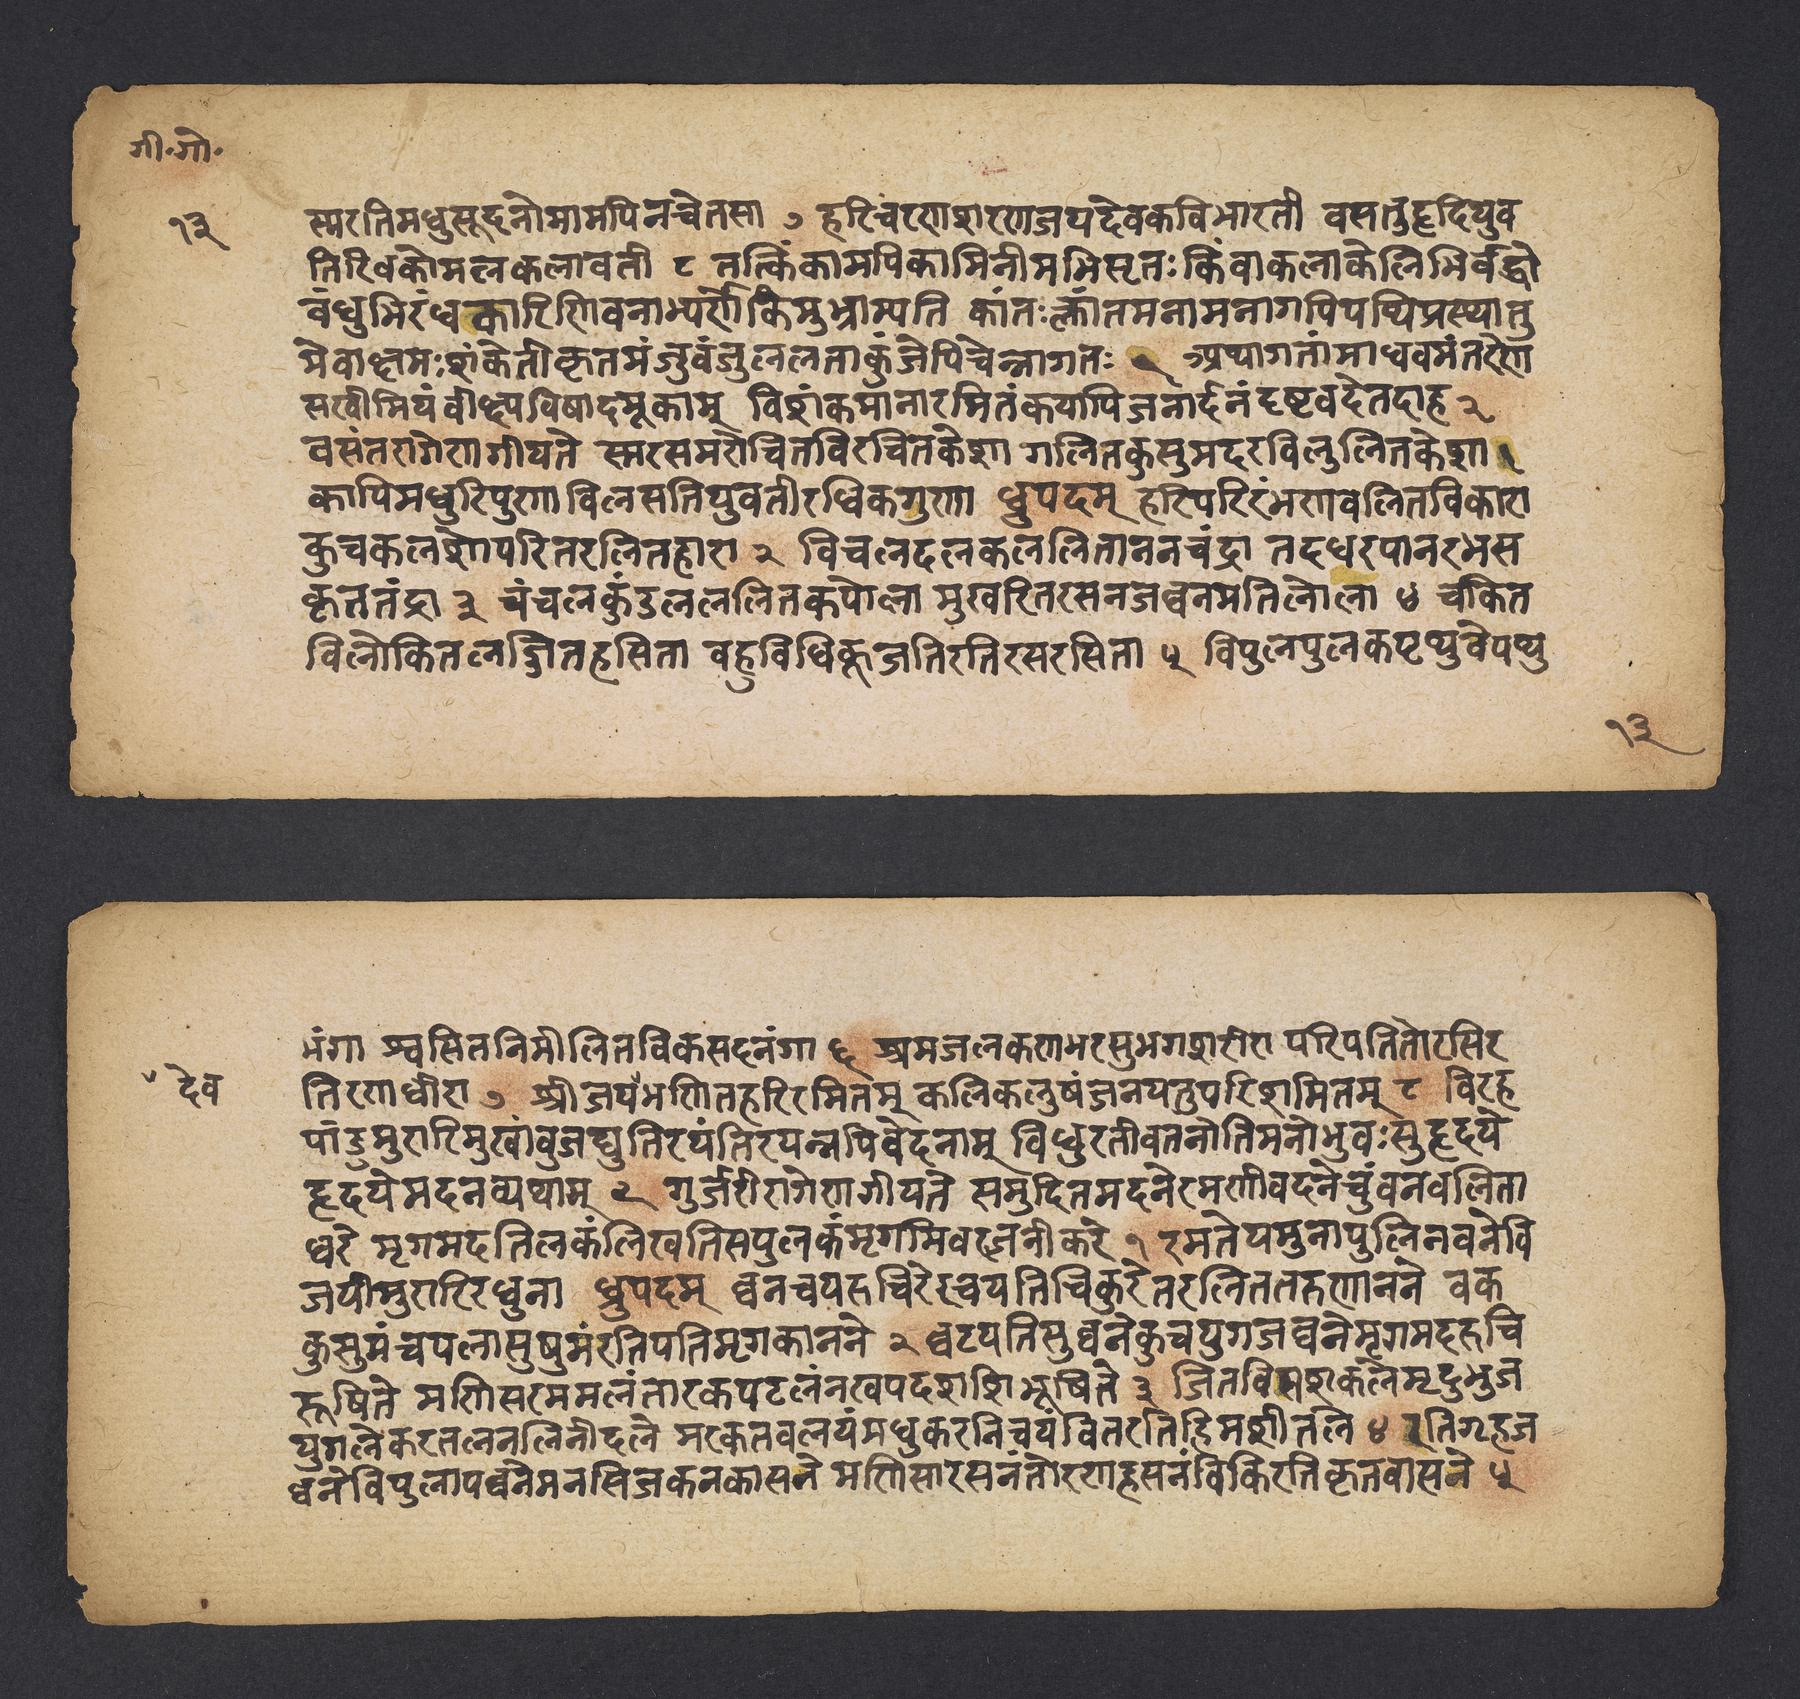 गी.गो.
१३
स्मरतिमधुसूदनोमामपिनचेतसा ७ हरिचरणशरणजयदेवकविभारती वसतुहृदियुव
तिरिवकोमलकलावती ८ तत्किंकामपिकामिनीमभिसृतः किंवाकलाकेलिभिर्वद्धो
वंधुभिरंधकारिणिवनाभ्यर्णेकिमुभ्राम्यति कांतःक्लांतमनामनागपिपथिप्रस्थातु
मेवाक्षमःशंकेतीकृतमंजुवंजुललताकुंजेपिचेन्नागतः १ अथागतांमाधवमंतरेण
सखीमियंवीक्ष्यविषादमूकाम् विशंकमानारमितंकयापिजनार्दनंदृष्टवदेतदाह २
वसंतरागेणगीयते स्मरसमरोचितविरचितवेशा गलितकुसुमदरविलुलितकेशा १
कापिमधुरिपुणाविलसतियुवतीरधिकगुणा ध्रुपदम् हरिपरिरंभणवलितविकारा
कुचकलशोपरितरलितहारा २ विचलदलकललिताननचंद्रा तदधरपानरभस
कृततंद्रा ३ चंचलकुंडलललितकपोला मुखरितरसनजघनमतिलोला ४ चकित
विलोकितलज्जितहसिता वहुविधिकूजतिरतिरसरसिता ५ विपुलपुलकपृथुवेपथु
१३
भंगा श्वसितनिमीलितविकसदनंगा ६ श्रमजलकणभरसुभगशरीरा परिपतितोरसिर
देव
तिरणधीरा ७ श्रीजयभणितहरिरमितम् कलिकलुषंजनयतुपरिशमितम् ८ विरह
पांडुमुरारिमुखांवुजद्युतिरयंतिरयन्नपिवेदनाम् विधुरतीवतनोतिमनोभुवःसुहृदये
हृदयेमदनव्यथाम् २ गुर्जरीरागेणगीयते समुदितमदनेरमणीवदनेचुंवनवलिता
धरे मृगमदतिलकंलिखतिसपुलकंमृगमिवरजनीकरे १ रमतेयमुनापुलिनवनेवि
जयीमुरारिरधुना ध्रुपदम् घनचयरुचिरेरचयतिचिकुरेतरलिततरुणानने वक
कुसुमंचपलासुषुमंरतिपतिमृगकानने २ घटयतिसुघनेकुचयुगजघनेमृगमदरुचि
रूषिते मणिसरममलंतारकपटलंनखपदशशिभूषिते ३ जितविसशकलेमृदुभुज
युगलेकरतलनलिनीदले मरकतवलयंमधुकरनिचयंवितरतिहिमशीतले ४ रतिगृहज
घनेविपुलापघनेमनसिजकनकासने मणिसारसनंतोरणहसनंविकिरतिकृतवासने ५